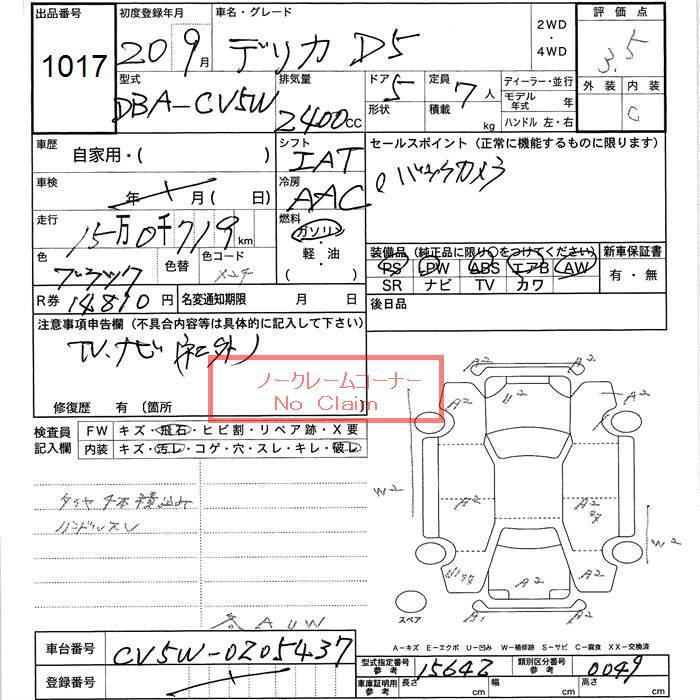 出品番号 初度登録年月 車名・グレード 2WD ・ 4WD 評価点
1017 20 9月 デリカ D5 3.5
型式 排気量 ドア形状 定員 積載 ディーラー・並行 外装 内装
DBA-CV5W 2400cc 5 7人 kg モデル年式 年 C
ハンドル 左・右
車歴 自家用・( ) シフト IAT セールスポイント (正常に機能するものに限ります)
車検 年 月( 日) 冷房 AAC バックカメラ
走行 15万0千719km 燃料 ガソリン・軽・油
色 ブラック 色替 色コード X24
装備品 (純正品に限り○をつけてください) 新車保証書
PS PW ABS エアB AW 有・無
SR ナビ TV カワ
R券 14810円 名変通知期限 月 日 後日品
注意事項申告欄 (不具合内容等は具体的に記入して下さい)
TV.ナビ(社外)
ノークレームコーナー
No Claim
修復歴 有 〔箇所 〕
検査員記入欄 FW キズ・飛石・ヒビ割・リペア跡・X要
内装 キズ・汚レ・コゲ・穴・スレ・キレ・破レ
タイヤ4本積込み
ハンドルスレ
AUW
A2 A2 A2 A2
W2 A2 A2
W2
A2 A2
スペア
A-キズ E-エクボ U-凹み W-補修跡 S-サビ C-腐食 XX-交換済
車台番号 CV5W-0205437
型式指定番号 参考 15642 類別区分番号 参考 0049
登録番号
車庫証明用 参考 長さ cm 幅 cm 高さ cm